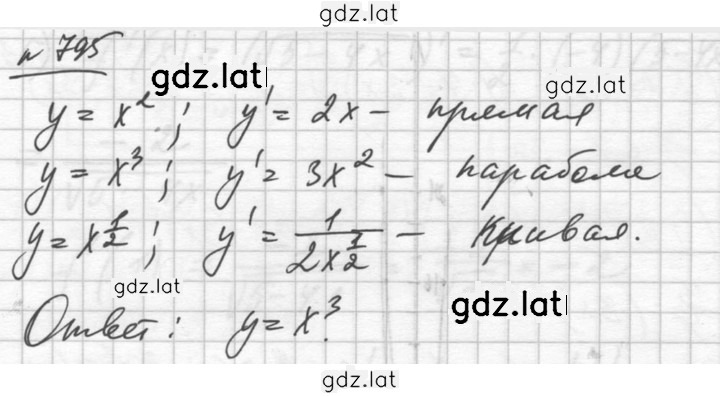 gdz.lat
№ 795
gdz.lat
gdz.lat
y = x²; y' = 2x – прямая
y = x³; y' = 3x² – парабола
y = x^(1/2); y' = 1/(2x^(1/2)) – кривая.
gdz.lat
gdz.lat
Ответ: y = x³.
gdz.lat